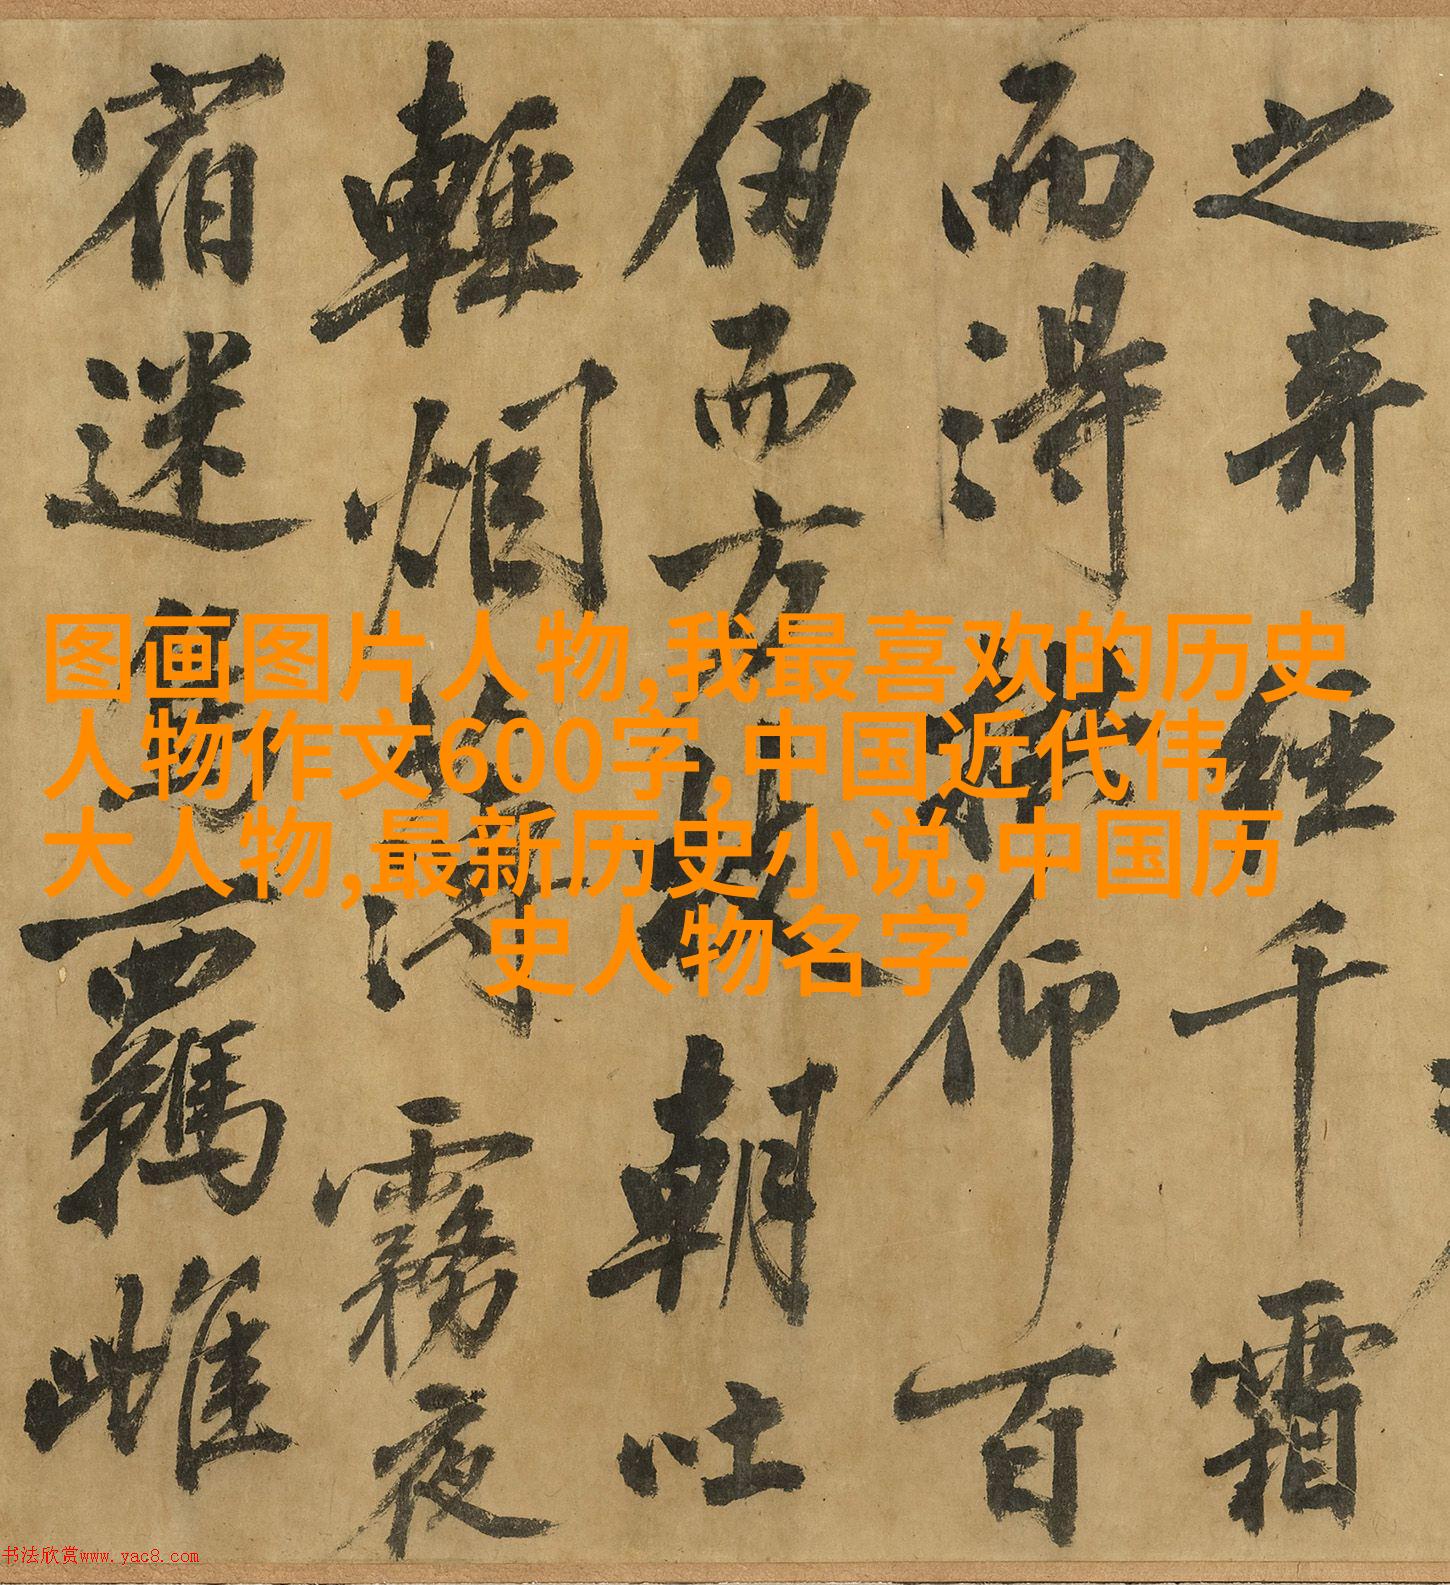 之奇經千霜
而得仰百
仞而方朝吐
輕烟薄霧夜
宿迷鳥羈雌
图画图片人物,我最喜欢的历史
人物作文600字,中国近代伟
大人物,最新历史小说,中国历
史人物名字
书法欣赏www.yac8.com